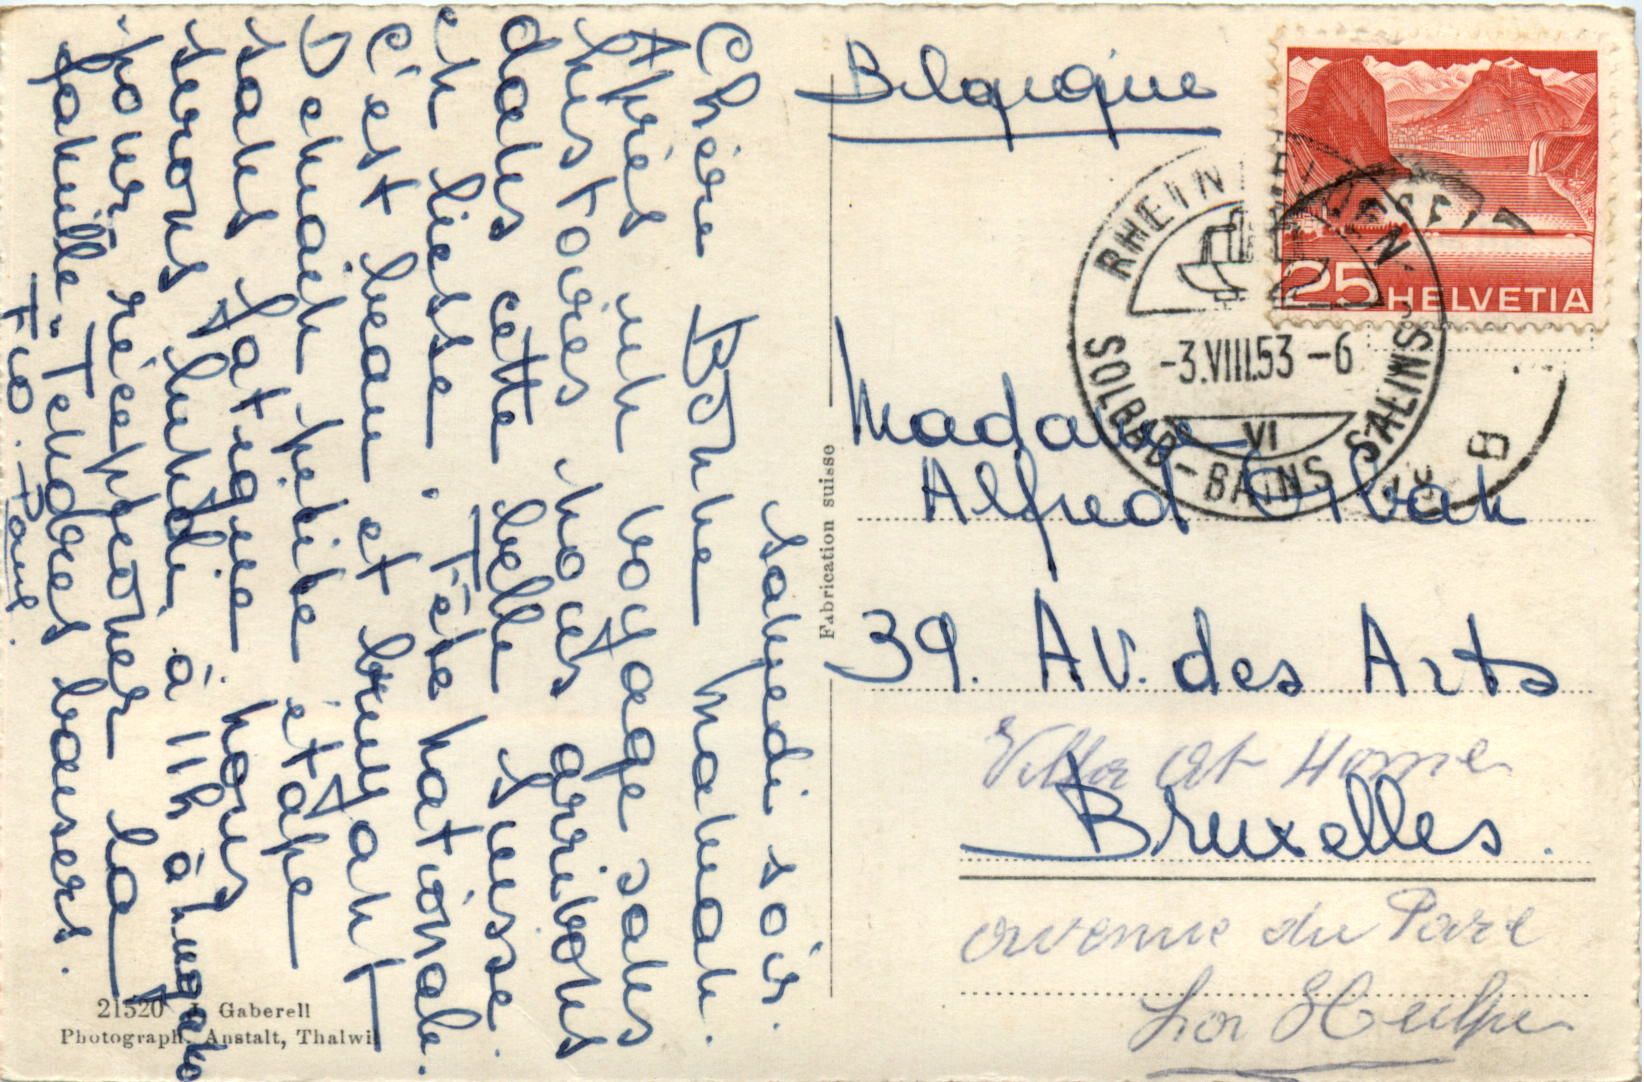 Samedi soir.
Chère Bonne Maman.
Après un voyage sans
histoires nous arrivons
dans cette belle Suisse
en liesse. Fête nationale.
C'est beau et bruyant
Demain petite étape
sans fatigue. nous
serons lundi à 11h à Lugano
pour réceptionner la
famille. Tendres baisers.
Fio. Paul.
21520 J. Gaberell
Photograph. Anstalt, Thalwil
Fabrication suisse
Belgique
25 HELVETIA
RHEINFELDEN
-3.VIII.53 -6
VI
SOLBAD-BAINS SALINS
B
Madame
Alfred Orban
39. AV. des Arts
Villa At Home
Bruxelles.
avenue du Parc
La Hulpe